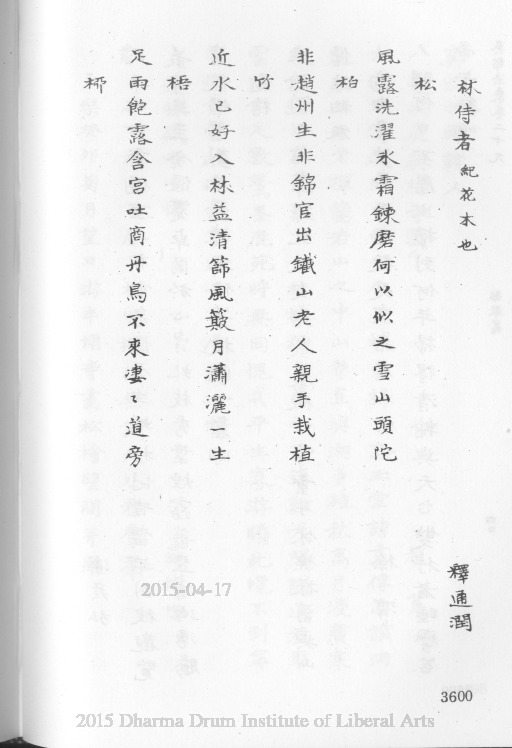 林侍者 紀花木也
釋通潤
松
風露洗濯氷霜鍊磨何以似之雪山頭陀
柏
非趙州生非錦官出鐵山老人親手栽植
竹
近水已好入林益清篩風簸月瀟灑一生
梧
足雨飽露含宮吐商丹鳥不來凄〻道旁
梛
3600
2015-04-17
2015 Dharma Drum Institute of Liberal Arts